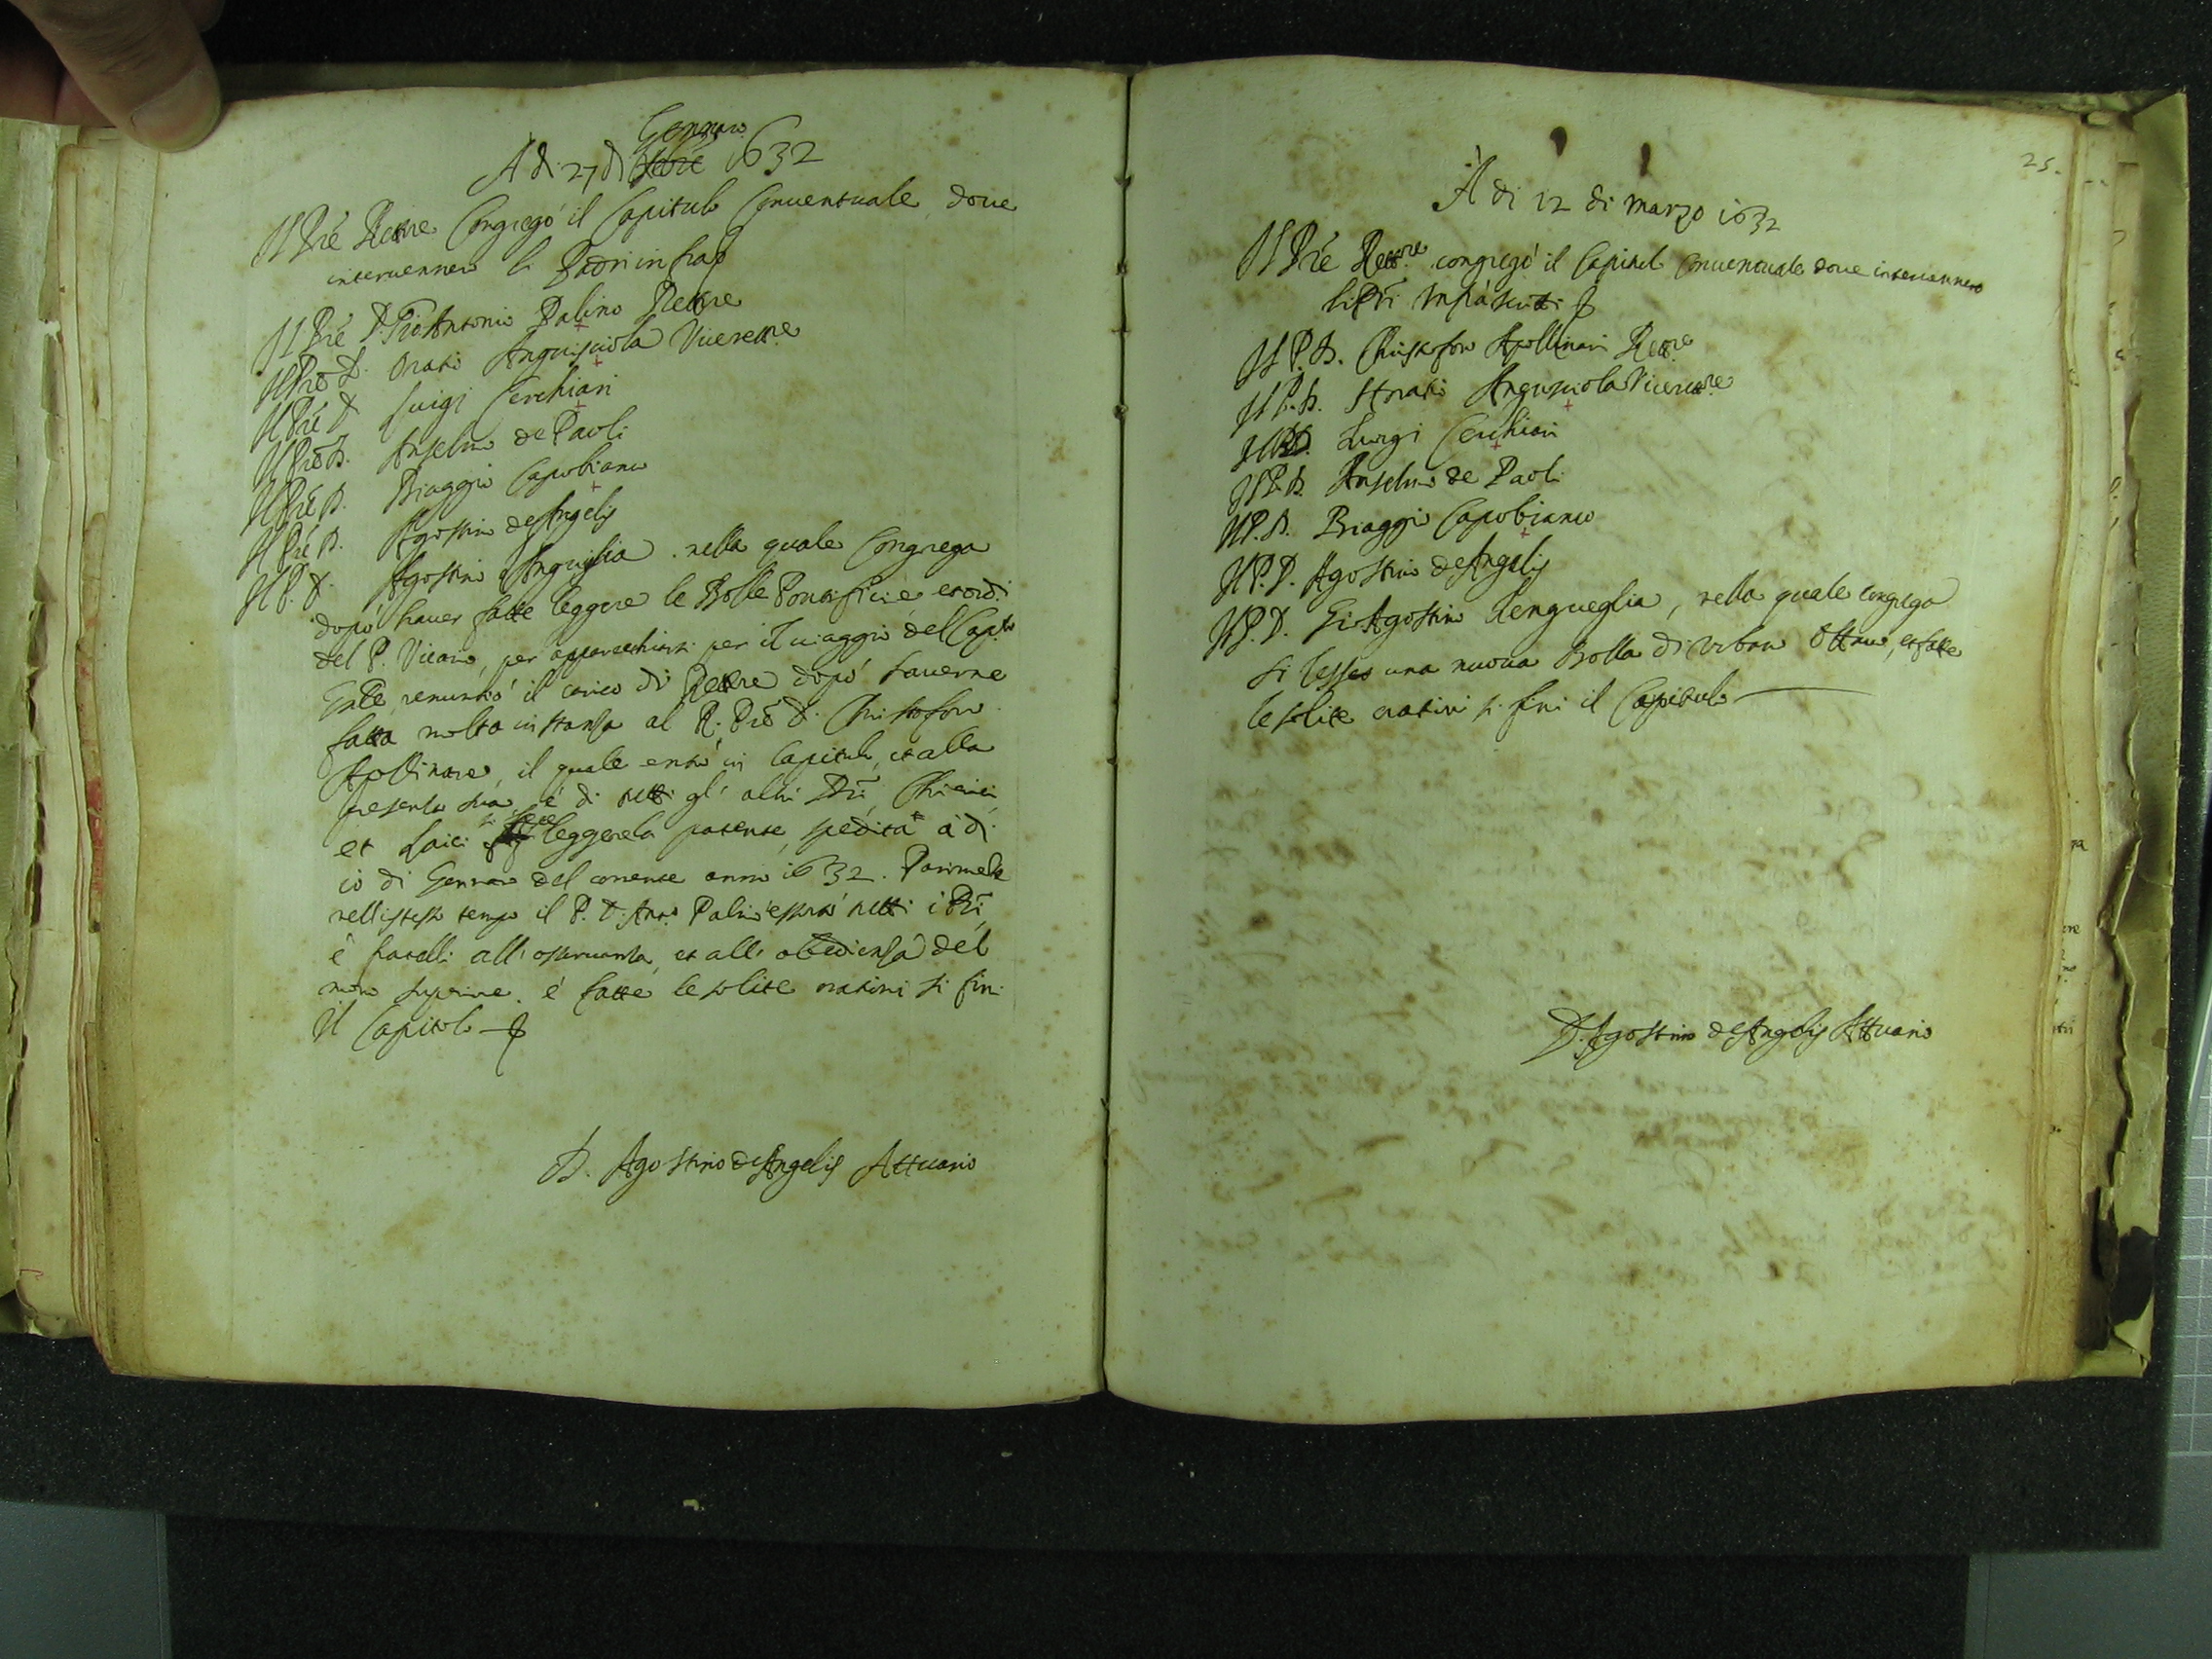 Gennaro
A di 27 di febre 1632
Il Pre Rettore Congregò il Capitulo Conuentuale, doue
interuennero li Padri infrasi
Il Pre D. Gio Antonio Palino Rettore
Il Pre D. Oratio Anguisciola Vicerettre
Il Pre D. Luigi Cerchiari
Il Pre D. Anselmo de Paoli
Il Pre D. Biaggio Capobianco
Il Pre D. Agostino de Angelis
Il P. D. Agostino nella quale Congrega
dopò hauer fatte leggere le Bolle Pontificie, et ordi
del P. Vicario, per apparecchiarsi per il uiaggio del Capto
Gnle, renuntiò il carico di Rettore dopò hauerne
fatta molta instanza al R. Pre D. Christoforo
Apollinare, il quale entrò in Capitulo, et alla
presenza sua, é di tutti gl' altri Pri, Chierici,
et Laici si fece leggere la patente, spedita à di
io di Gennaro del corrente anno i632. Parimete
nell'istesso tempo il P. D. Anto Palino essortò tutti i Pri,
é fratelli all' osseruanza, et all' obedienza del
nouo superiore. é fatte le solite orationi si finì
il Capitolo
D. Agostino de Angelis Attuario
25.
A di 12 di marzo i632
Il Pre Rettore congregò il Capitulo Conuentuale doue interuennero
li Pri infrascritti
Il P. D. Christoforo Apollinari Rettre
Il P. D. Horatio Anguisciola Vicerettre
Il P. D. Luigi Cerchiari
Il P. D. Anselmo de Paoli
Il P. D. Biaggio Capobianco
Il P. D. Agostino de Angelis
Il P. D. Gio Agostino Lengueglia, nella quale congrega
si lesse una nuova Bolla di Urbano Ottauo, et fatte
le solite orationi si finì il Capitulo
D. Agostino de Angelis Attuario